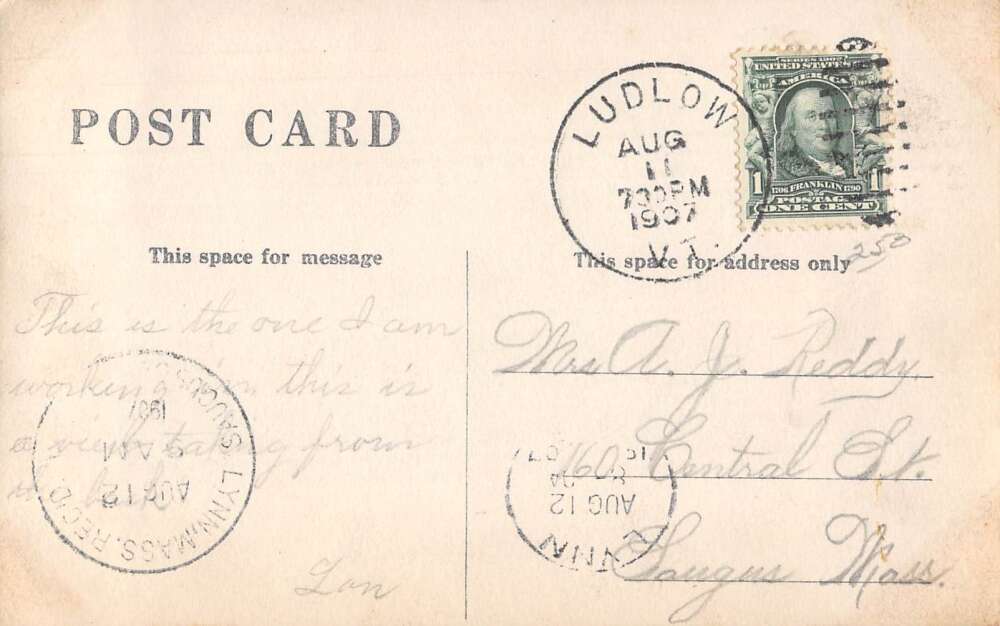 POST CARD
LUDLOW
AUG
11
730PM
1907
VT.
SERIES 1902
UNITED STATES
AMERICA
1 1706 FRANKLIN 1790 1
POSTAGE
ONE CENT
250
This space for message
This space for address only
This is the one I am
working on this is
a view taking from
the back
Lon
Mrs A. J. Reddy.
160 Central St.
Saugus Mass.
LYNN, MASS. REC'D.
SAUGUS
AUG 12
AM
1907
LYNN
AUG 12